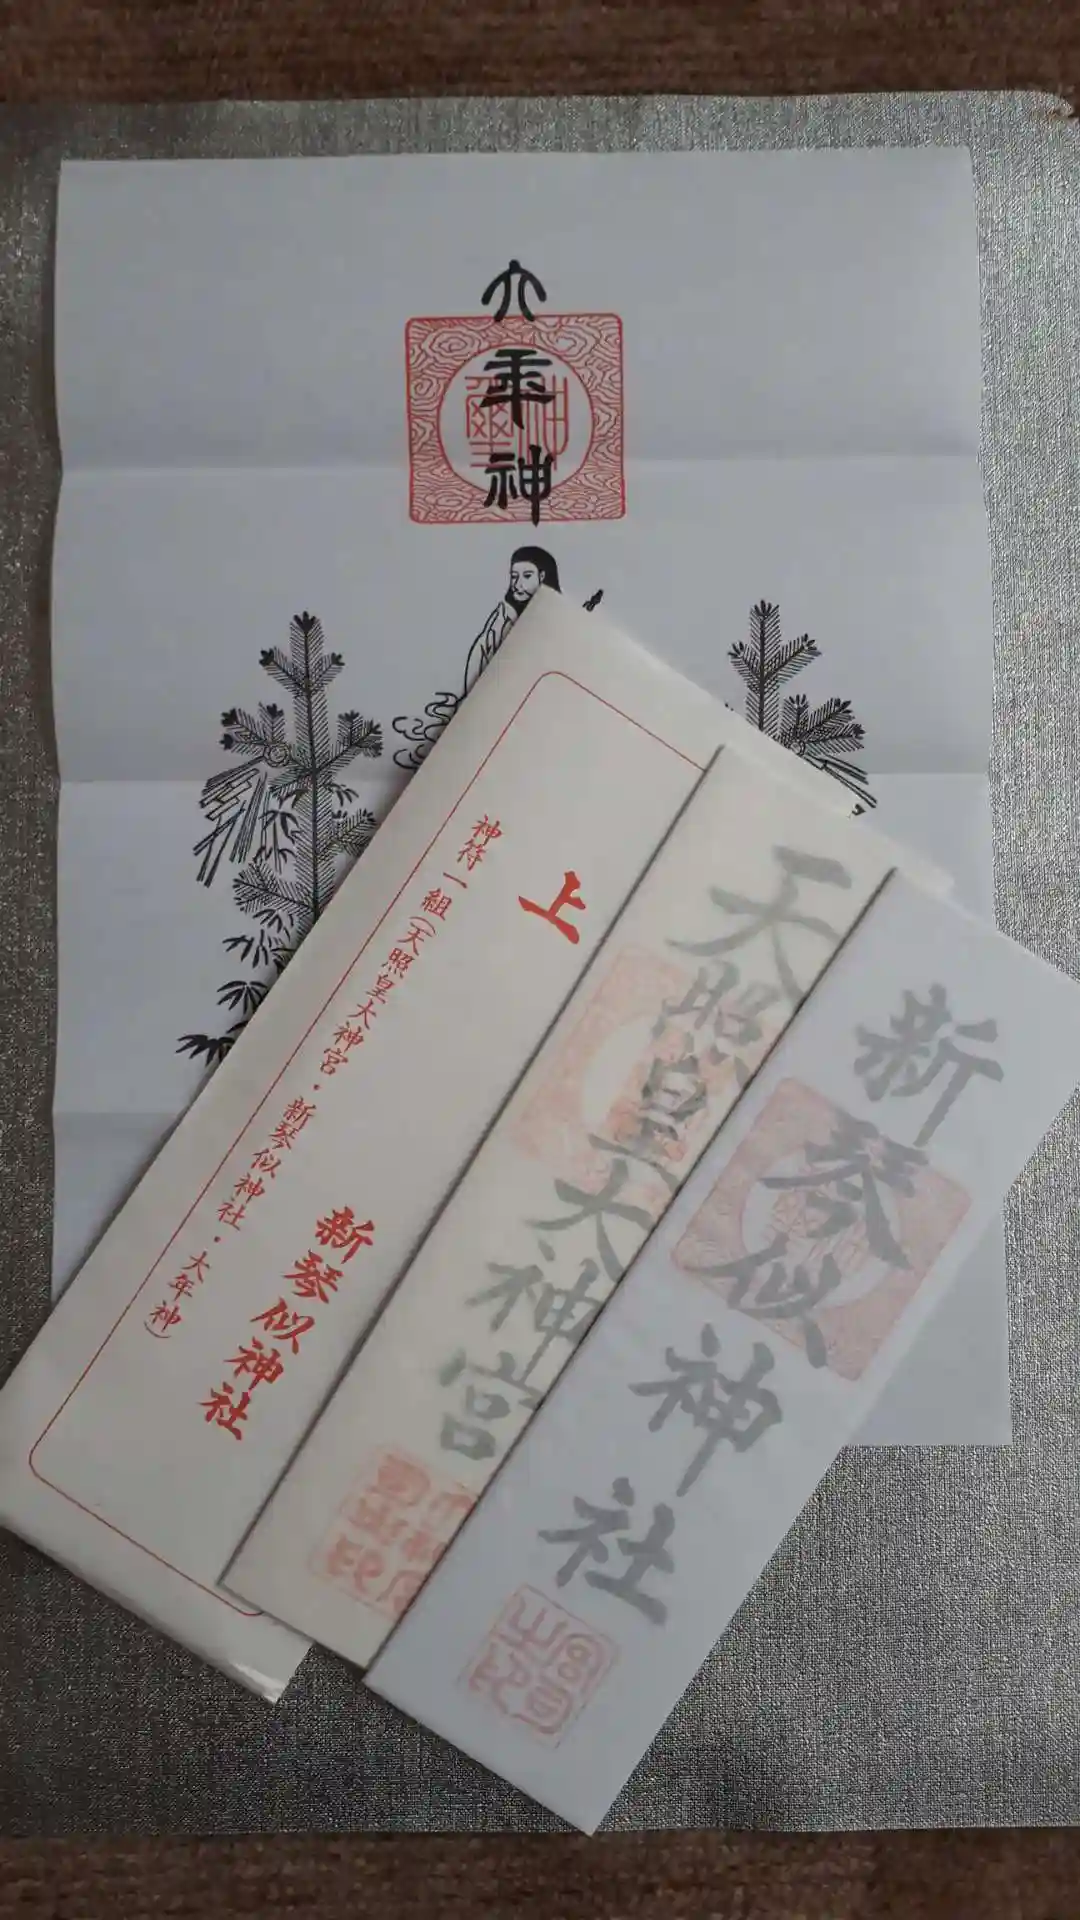 大年神
神璽
上
神符一組(天照皇大神宮・新琴似神社・大年神)
新琴似神社
天照皇大神宮
新琴似神社
宮司之印